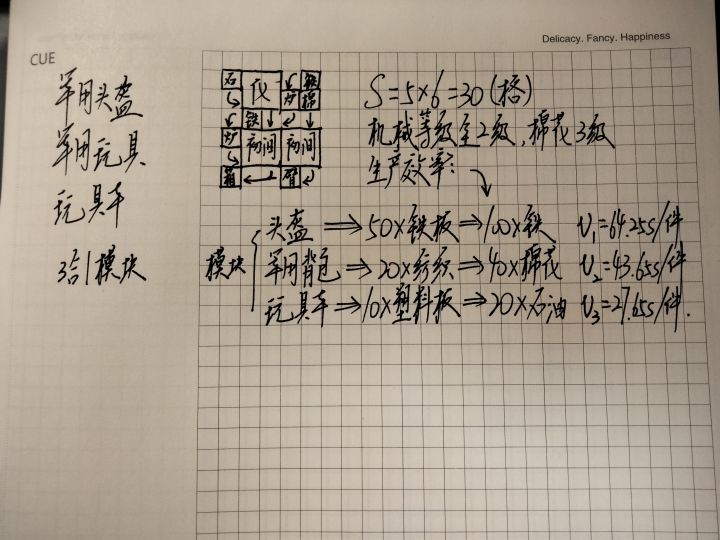 Delicacy. Fancy. Happiness
CUE
军用头盔
军用玩具
玩具车
3合1模块
石 仪 炉 铁 棉
铁
炉 初间 初间
箱 臂
S=5×6=30(格)
机械等级至2级,棉花3级
生产效率:
模块
头盔⇒50×铁板⇒100×铁 V₁=64.25s/件
军用背包⇒20×纺织⇒40×棉花 V₂=43.65s/件
玩具车⇒10×塑料板⇒20×石油 V₃=27.65s/件.